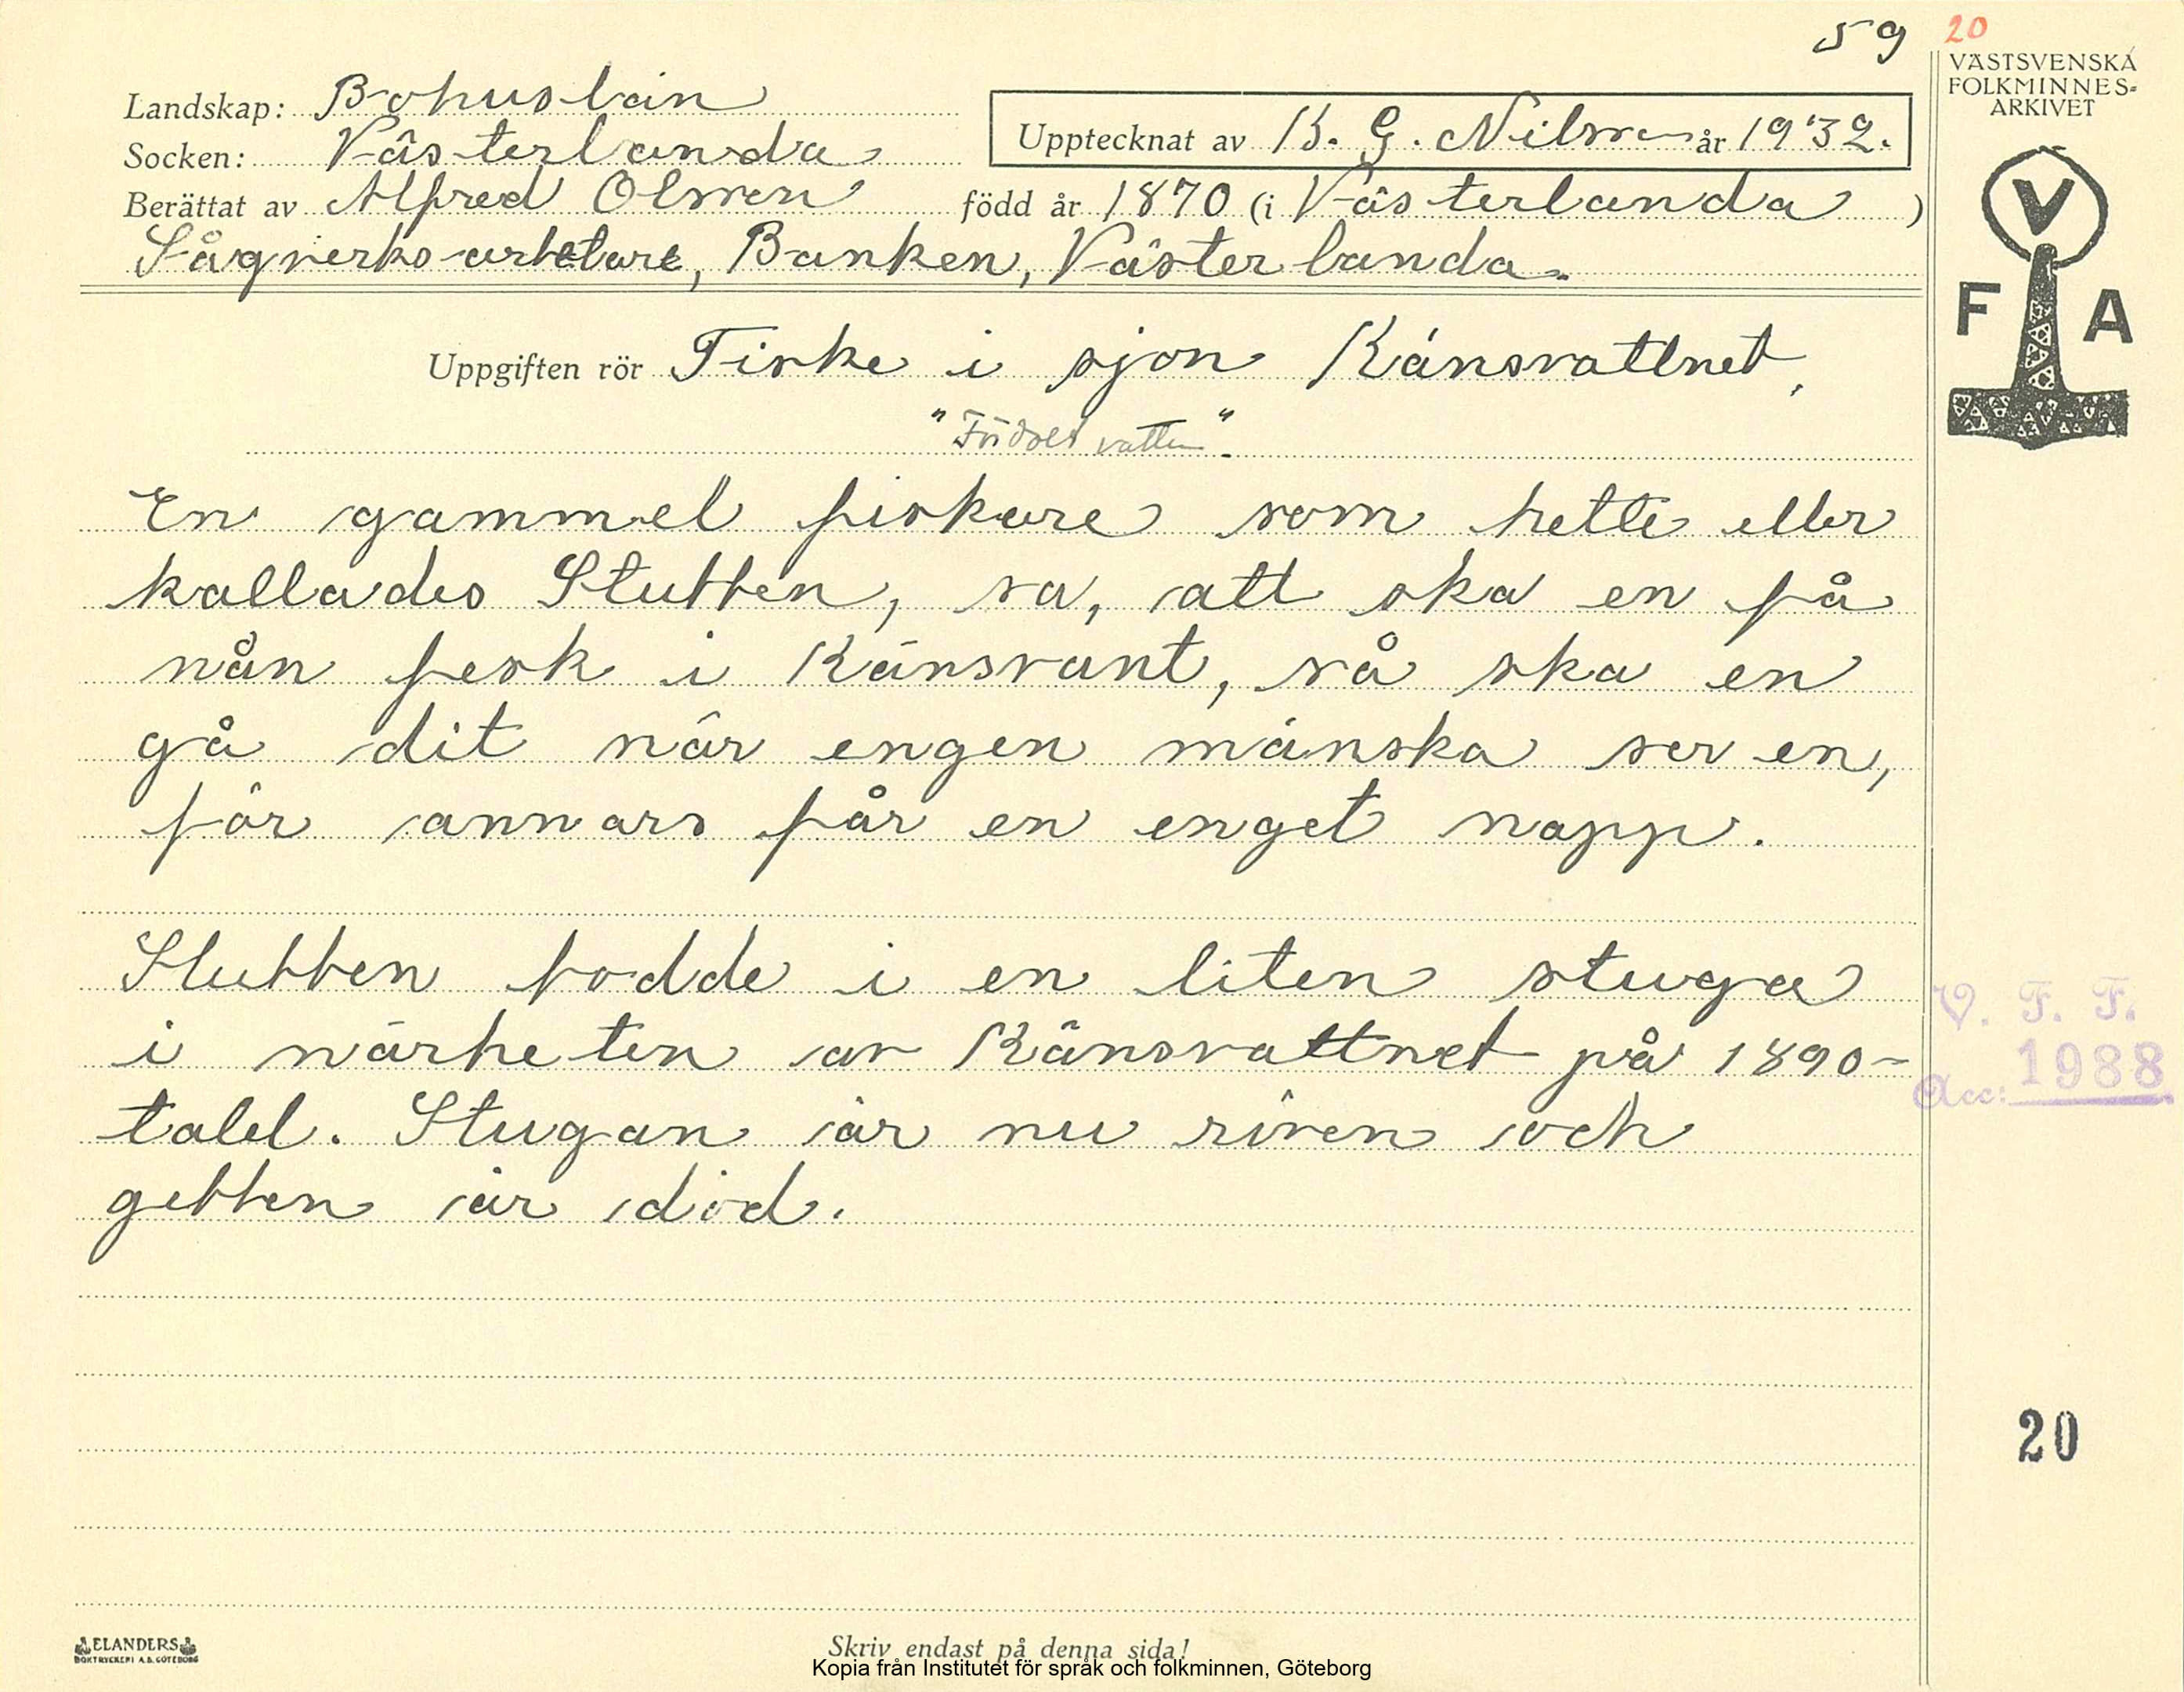 59 20
VÄSTSVENSKA
FOLKMINNES-
ARKIVET
Landskap: Bohuslän
Socken: Västerlanda
Upptecknat av K. G. Nilsson år 1932.
Berättat av Alfred Olssen född år 1870 (i Västerlanda )
Sågverksarbetare, Banken, Västerlanda.
V
F A
Uppgiften rör Fiske i sjön Känsvattnet,
"Födsel vatten".
En gammel fiskare som hette eller
kallades Stubben, sa, att ska en få
nån fesk i Känsvant, så ska en
gå dit när engen mänska ser en,
för annars får en enget napp.
Stubben bodde i en liten stuga
i närheten av Känsvattnet på 1890-
talet. Stugan är nu riven och
gubben är död.
V. F. F.
Acc: 1988
20
ELANDERS
BOKTRYCKERI A.B. GÖTEBORG
Skriv endast på denna sida!
Kopia från Institutet för språk och folkminnen, Göteborg